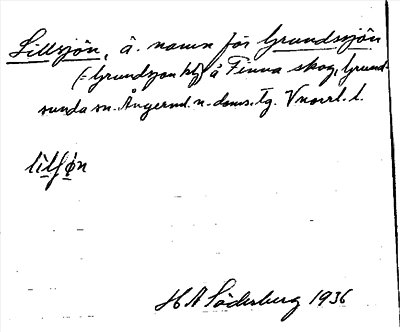 Lillsjön, ä. namn för Grundssjön
(= Grundsjon kb) å Finna skog, Grund-
sunda sn. Ångermd. n. doms. tg. Vnorrl. l.
lilsjøn
H A Söderberg 1936